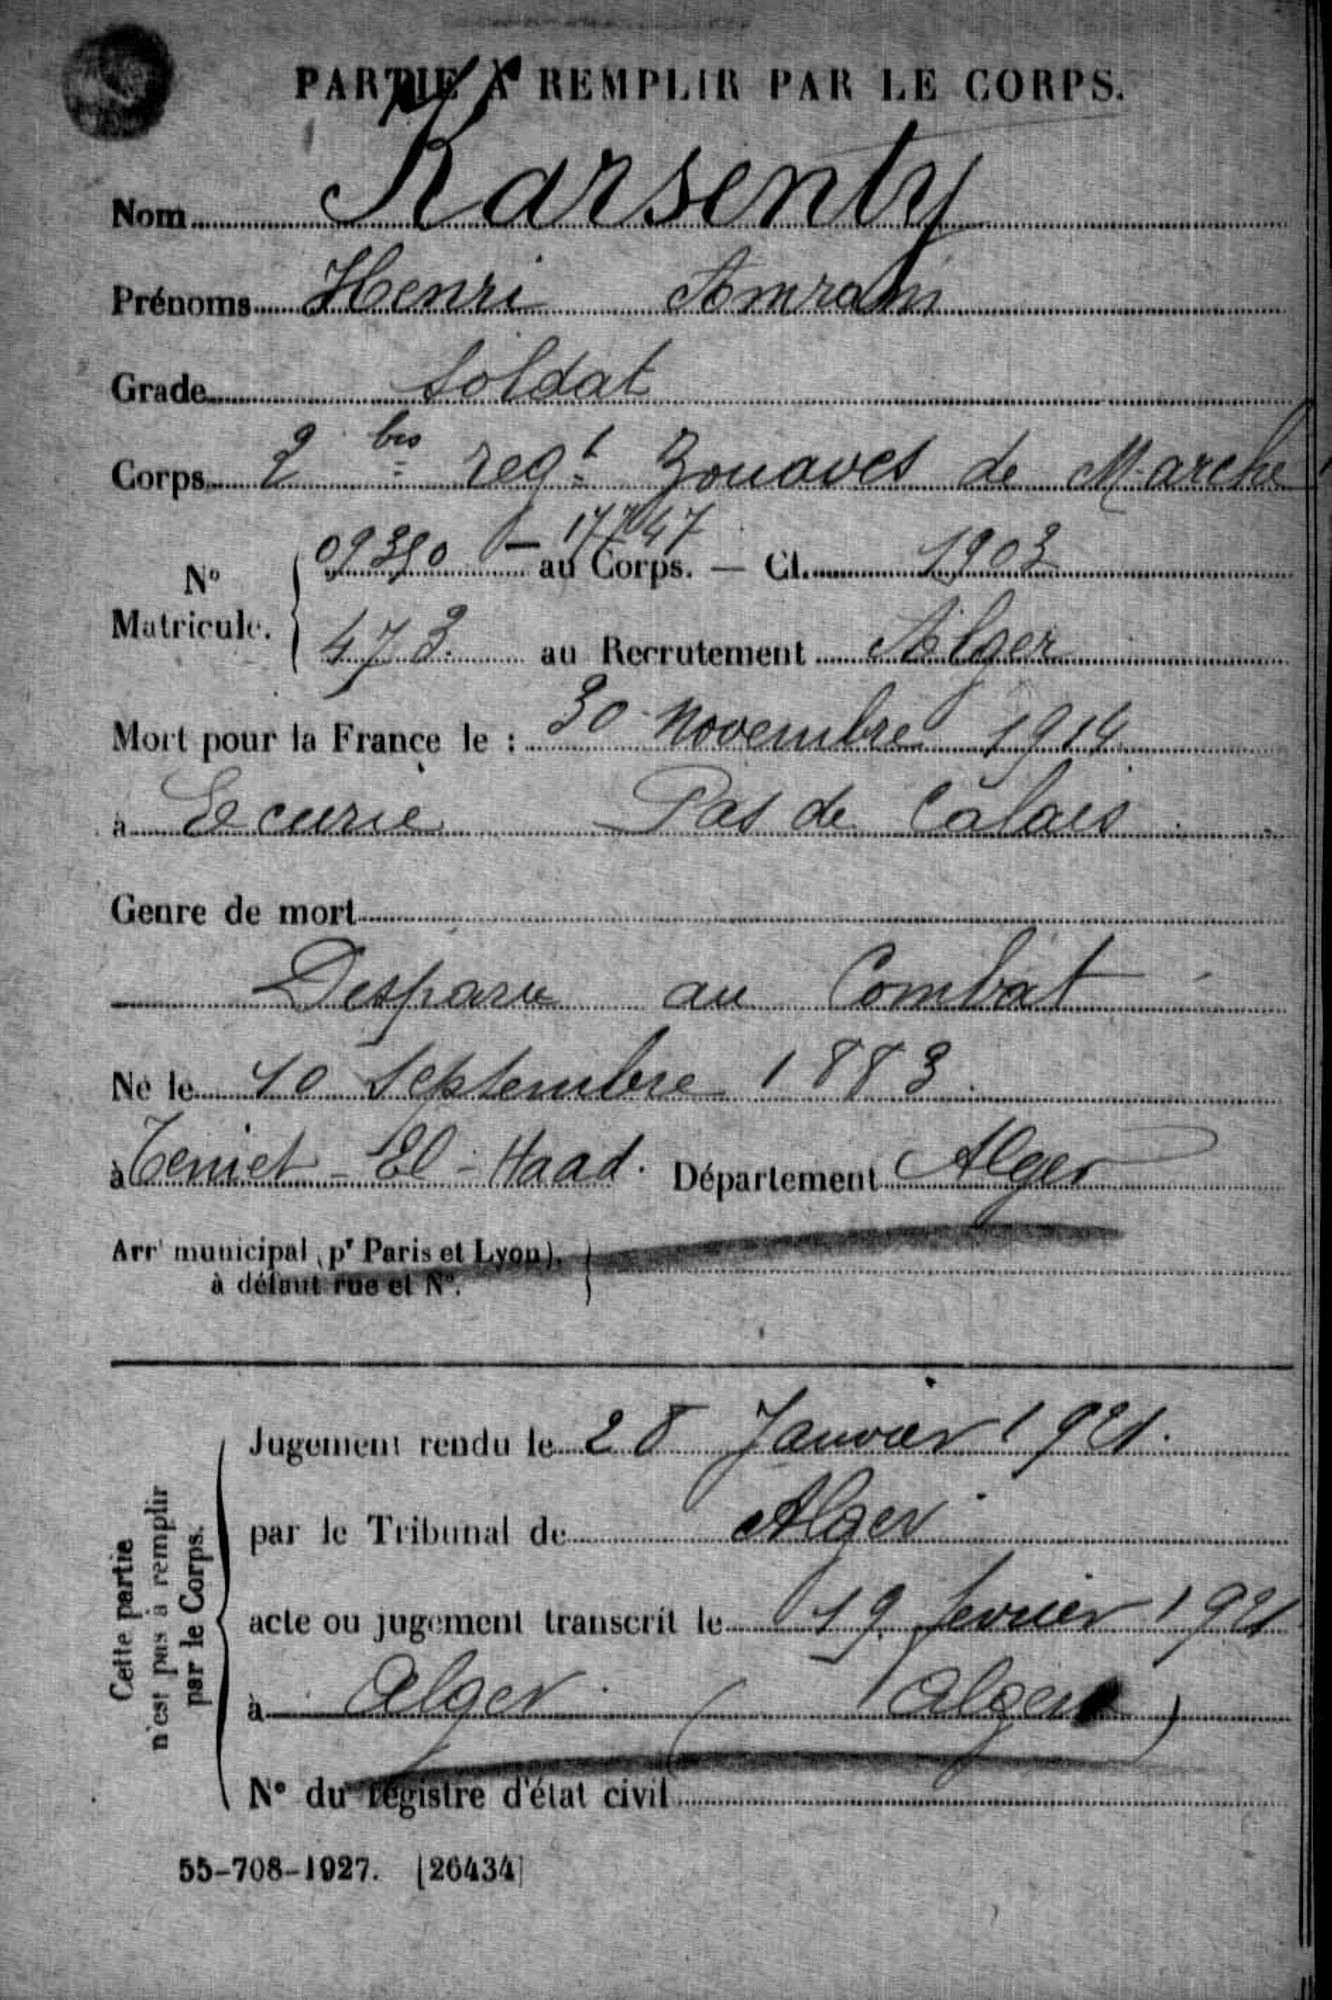 PARTIE À REMPLIR PAR LE CORPS.
Nom Karsenty
Prénoms Henri Amram
Grade Soldat
Corps 2 bis regt Zouaves de Marche
17747
N° Matricule. 09350 — au Corps. — Cl. 1903
473 au Recrutement Alger
Mort pour la France le : 30 Novembre 1914
à Ecurie Pas de Calais
Genre de mort
Disparu au Combat
Né le 10 Septembre 1883
à Teniet - El - Haad. Département Alger
Arrt municipal (pr Paris et Lyon),
à défaut rue et N°.
Cette partie
n'est pas à remplir
par le Corps.
Jugement rendu le 28 Janvier 1921.
par le Tribunal de Alger
acte ou jugement transcrit le 19 fevrier 1921
à Alger (Alger)
N° du registre d'état civil
55-708-1927. [26434]